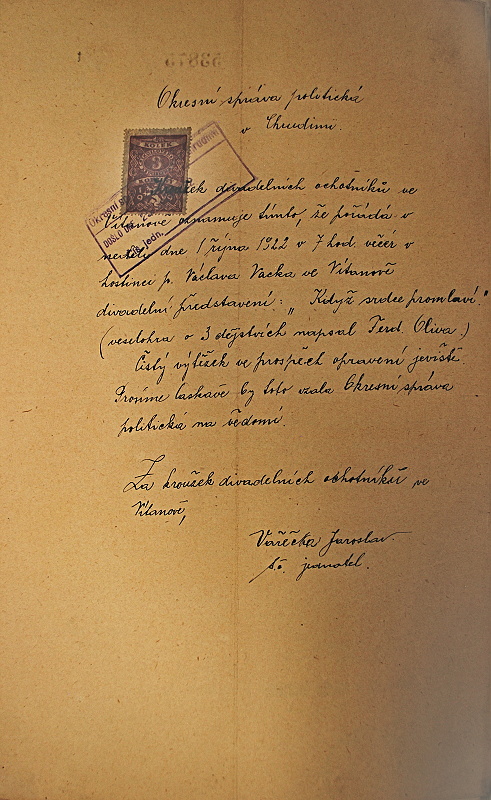 Okresní správa politická
v Chrudimi.
KOLEK
3
Okresní
DOŠLO DNE
jedn.
Kroužek divadelních ochotníků ve
Vítanově oznamuje tímto, že pořádá v
neděli dne 1 října 1922 v 7 hod. večer v
hostinci p. Václava Vacka ve Vítanově
divadelní představení: "Když srdce promluví."
(veselohra o 3 dějstvích napsal Ferd. Oliva.)
Čistý výtěžek ve prospěch opravení jeviště.
Prosíme laskavě by toto vzala Okresní správa
politická na vědomí.
Za kroužek divadelních ochotníků ve
Vítanově,
Vařečka Jaroslav.
t.č. jednatel.